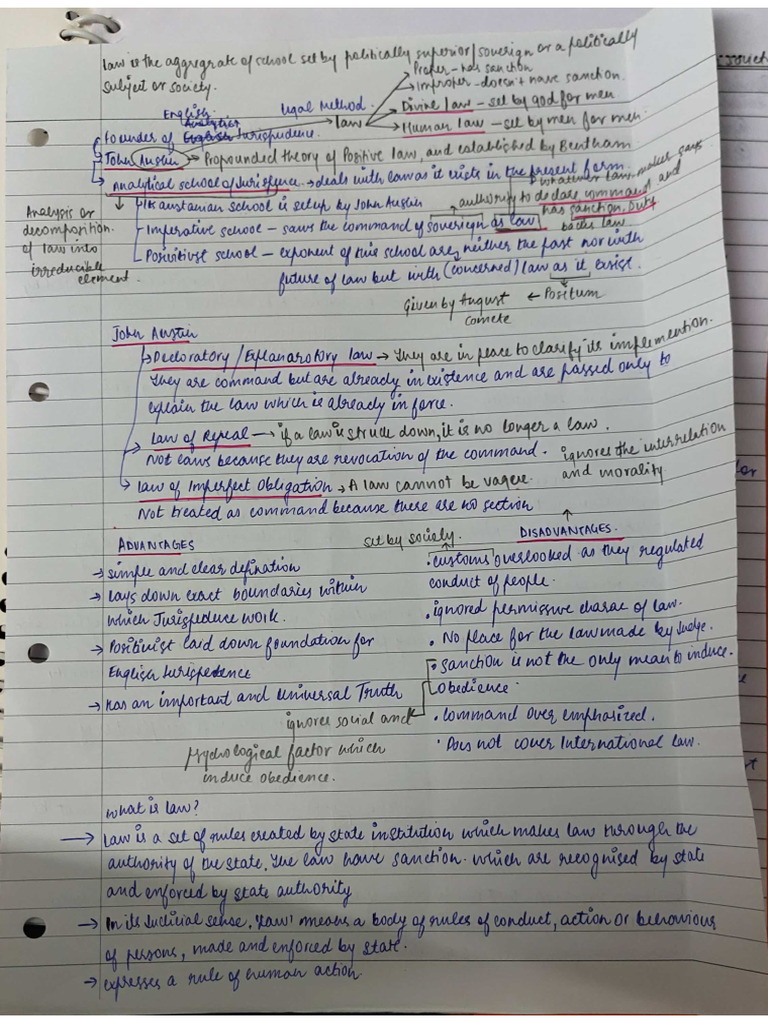 Law is the aggregrate of school set by politically superior/soverign or a politically
subject or society.
Proper - has sanction
Improper - doesn't have sanction.
Legal Method.
Law
Divine law - set by god for men
Human law - set by men for men.
English
Analytical
Founder of English Jurispedence.
John Austin → Propounded theory of Positive law, and established by Bentham
Analytical school of Jurisprence → deals with law as it exists in the present form.
whatever law maker says
authority to declare command and
has sanction, Duty
backs law
Analysis or
decomposition
of law into
irreducible
element.
austanian school is setup by John Austin
Imperative school - saws the command of soverign as law
Posivitist school - exponent of this school are neither the past nor with
future of law but with (concerned) law as it exist.
Given by August ← Positum
comete
John Austin
Decloratory / Explanarotory law → They are in peace to clarify its implemention.
They are command but are already in existence and are passed only to
explain the law which is already in force.
Law of Repeal → if a law is struck down, it is no longer a law.
Not laws because they are revocation of the command.
ignores the interrelation
and morality
Law of Imperfect Obligation → A law cannot be vague
Not treated as command because there are no section
ADVANTAGES
→ simple and clear defination
→ Lays down exact boundaries within
which Jurispeduce work.
→ Positivist laid down foundation for
English Jurispedence
→ Has an important and Universal Truth
set by society.
DISADVANTAGES.
• customs overlooked as they regulated
conduct of people.
• ignored permissive charac of law.
• No place for the law made by Judge.
• Sanction is not the only mean to induce.
obedience.
ignores social and
psychological factor which
induce obedience.
• Command over emphasized.
• Does not cover International law.
What is law?
→ Law is a set of rules created by state institution which makes law through the
authority of the state. The law have sanction. which are recognised by state
and enforced by state authority
→ In its Judicial sense. 'Law' means a body of rules of conduct, action or behaviours
of persons, made and enforced by state.
→ expresses a rule of human action.